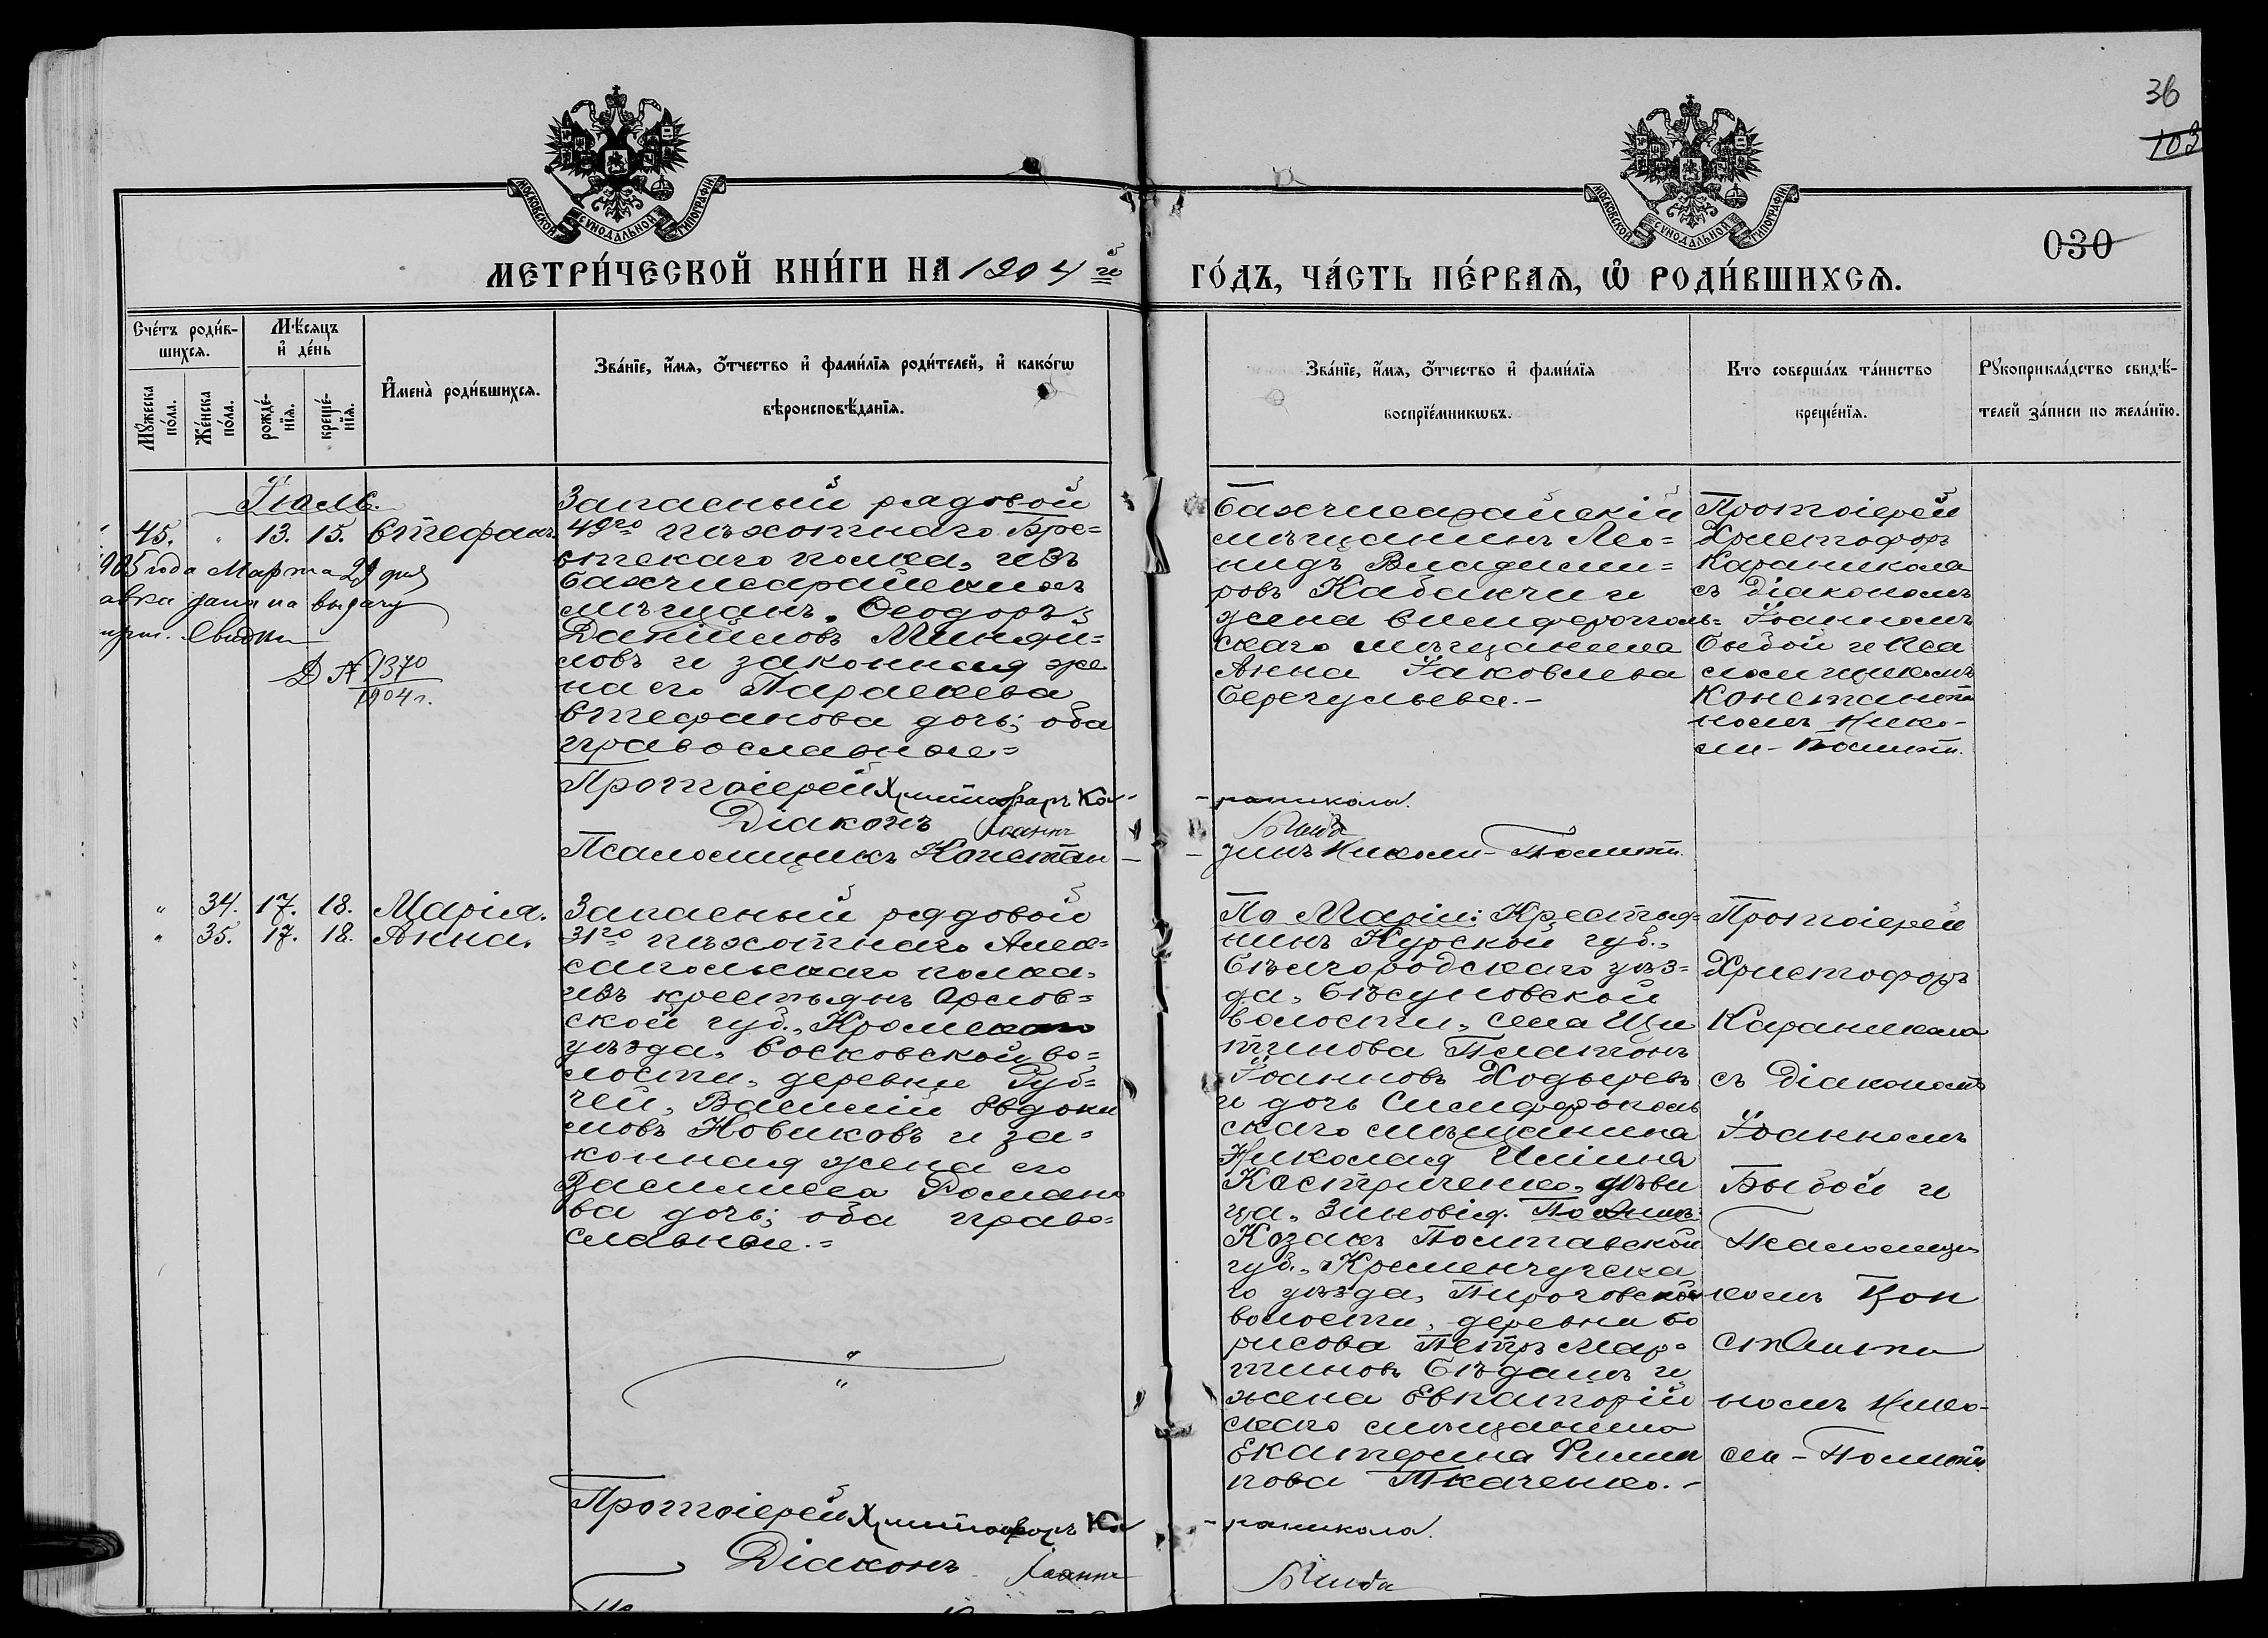 36
103
030
МОСКОВСКОЙ СѴНОДАЛЬНОЙ ТИПОГРАФІИ
МОСКОВСКОЙ СѴНОДАЛЬНОЙ ТИПОГРАФІИ
МЕТРИ́ЧЕСКОЙ КНИ́ГИ НА 1904 й го́
ГО́ДЪ, ЧА́СТЬ ПЕ́РВАѦ, Ѿ РОДИ́ВШИХСѦ.
Сче́тъ роди́в-
шихся.
Мѣ́сяцъ
и҆ де́нь
Мꙋ́жеска по́ла.
Же́нска по́ла.
рожде́-
нїѧ.
креще́-
нїѧ.
И҆мена̀ роди́вшихсѧ.
Зва́нїе, и҆́мѧ, ѻ҆́тчество и҆ фамі́лїѧ роди́телей, и҆ како́гѡ
вѣроисповѣ́данїѧ.
Зва́нїе, и҆́мѧ, ѻ҆́тчество и҆ фамі́лїѧ
воспрїе́мникѡвъ.
Кто соверша́лъ та́инство
креще́нїѧ.
Рꙋкоприкла́дство свидѣ́-
телей за́писи по жела́нїю.
Іюль.
45. " 13. 15. Стефанъ.
1905 года Марта 29 дня
дана на выдачу
Свидѣт
Д № 1370
1904 г.
Запасный рядовой
49го пѣхотнаго Бре=
стскаго полка, изъ
бахчисарайскихъ
мѣщанъ, Ѳеодоръ
Даніиловъ Минди=
ловъ и законная же
на его Параскева
Стефанова дочь; оба
православные=
Протоіерей Христофоръ Ка-
Діаконъ Іоаннъ
Псаломщикъ Констан-
Бахчисарайскій
мѣщанинъ Лео=
нидъ Владими=
ровъ Кабакчи и
жена Симферополь=
скаго мѣщанина
Анна Іаковлева
Серегульева.-
Протоіерей
Христофоръ
Караникола
съ Діакономъ
Іоанномъ
Быбой и Пса
ломщикомъ
Константи
номъ Нико-
ли-Полити.
-раникола.
Быба
-тинъ Николи-Полити.
" 34. 17. 18. Марія.
" 35. 17. 18. Анна.
Запасный рядовой
31го пѣхотнаго Алек=
сапольскаго полка,
изъ крестьянъ Орлов=
ской губ., Кромскаго
уѣзда, Сосковской во=
лости, деревни Руб=
чей, Василій Евдоки
мовъ Новиковъ и за=
конная жена его
Василисса Романо
ва дочь; оба право=
славные.=
Протоіерей Христофоръ Ка
Діаконъ Іоаннъ
По Маріи: Крестья=
нинъ Курской губ.,
Бѣлгородскаго уѣз=
да,
волости, села Щи
тинова Платонъ
Іоанновъ Ходыревъ
и дочь Симферополь
скаго мѣщанина
Николая Иліина
Костриченко, дѣви
ца, Зиновія. По Аннѣ:
Козакъ Полтавской
губ., Кременчугска
го уѣзда, Пироговской
волости, деревни Бо
рисова Петръ Мар=
тиновъ Бѣданъ и
жена Евпаторій
скаго мѣщанина
Екатерина Филип
пова Ткаченко.-
Протоіерей
Христофоръ
Караникола
съ Діакономъ
Іоанномъ
Быбой и
Псаломщи
комъ Кон
станти
номъ Нико-
ли-Полити.
-раникола.
Быба